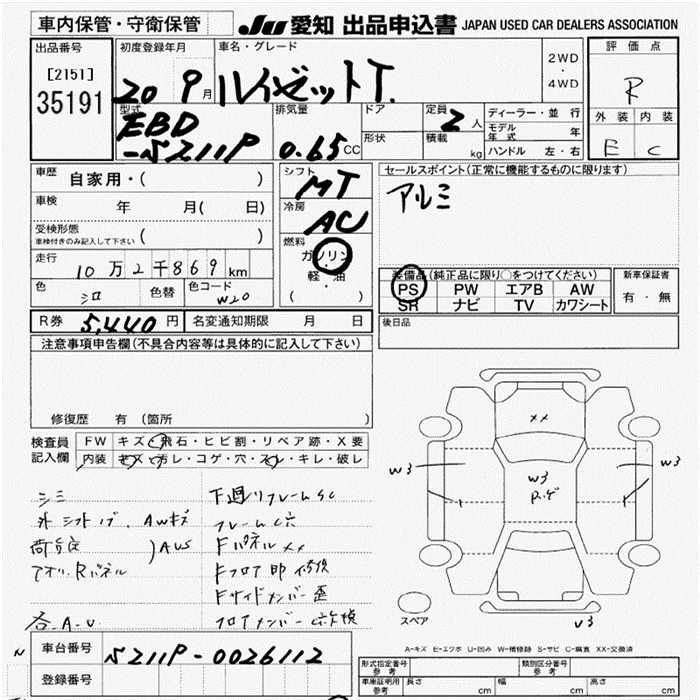 車内保管・守衛保管
JU 愛知 出品申込書 JAPAN USED CAR DEALERS ASSOCIATION
出品番号
[2151]
35191
初度登録年月
20 9月
車名・グレード
ハイゼットT.
2WD
・
4WD
評価点
R
外装 内装
E C
型式
EBD
-S211P
排気量
0.65CC
ドア
形状
定員
2人
積載
kg
ディーラー・並行
モデル年式 年
ハンドル 左・右
車歴
自家用・( )
車検
年 月( 日)
受検形態
車検付きのみ記入して下さい ( )
走行
10万2千869km
色
シロ
色替
色コード
W20
シフト
MT
冷房
AC
燃料
ガソリン
・
軽・油
( )
セールスポイント(正常に機能するものに限ります)
アルミ
装備品(純正品に限り○をつけてください)
PS PW エアB AW
SR ナビ TV カワシート
新車保証書
有・無
R券 5,440円
名変通知期限 月 日
後日品
注意事項申告欄(不具合内容等は具体的に記入して下さい)
修復歴 有 (箇所 )
検査員
記入欄
FW キズ・飛石・ヒビ割・リペア跡・X要
内装 キズ・ヨゴレ・コゲ・穴・スレ・キレ・破レ
シミ
外 シフトノブ. AWキズ
荷台
AUS
アオリ.Rパネル
各.A.U
下廻リフレームSC
フレームC穴
Fパネルxx
Fフロア 修複
Fサイドメンバー歪
フロアメンバー
xx
W3
W3
W3
R
U3
スペア
A-キズ E-エクボ U-凹み W-補修跡 S-サビ C-腐食 XX-交換済
N
車台番号
S211P-0026112
登録番号
形式指定番号
参考
類別区分番号
参考
車庫証明用
参考
長さ cm 幅 cm 高さ cm